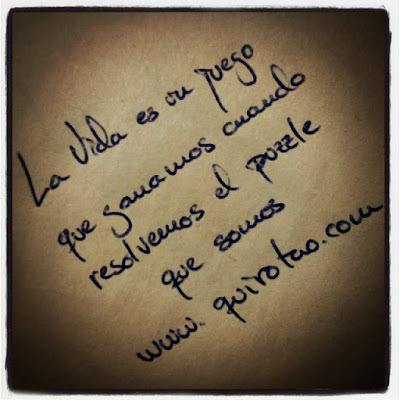 La Vida es un juego
que ganamos cuando
resolvemos el puzzle
que somos
www.quirotao.com